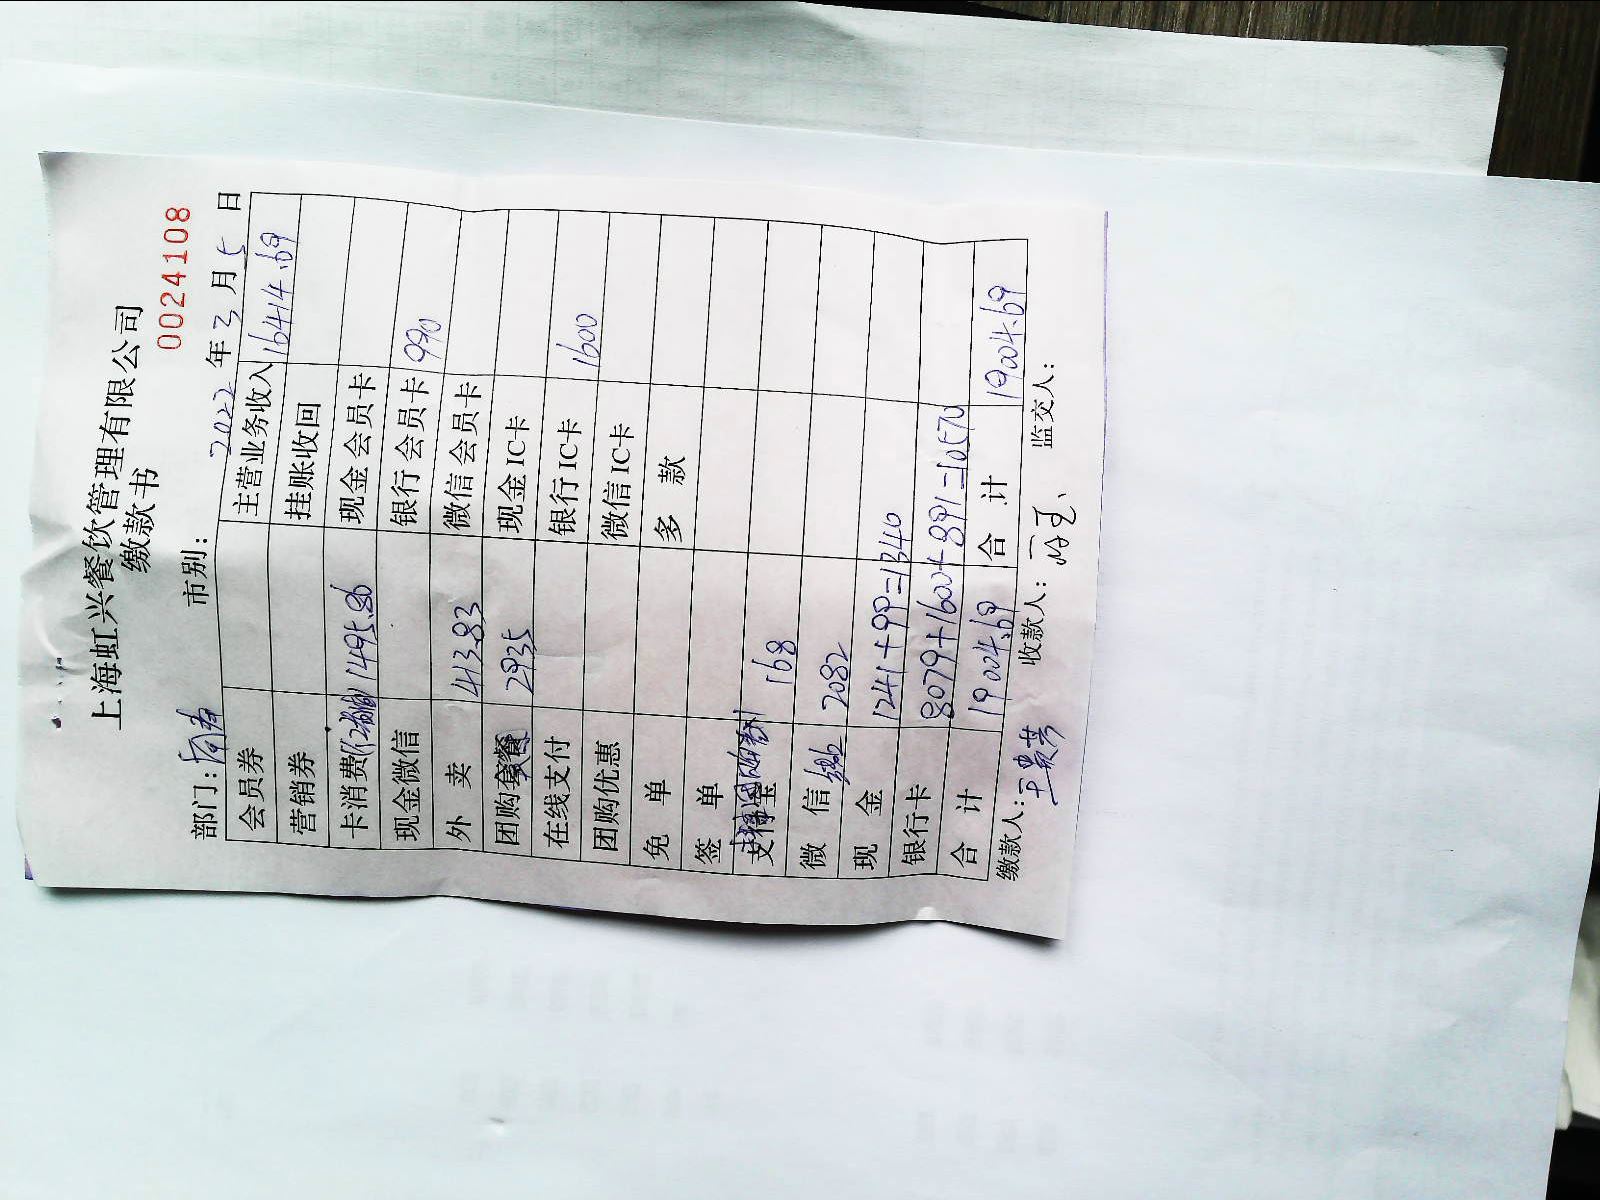 上海虹兴餐饮管理有限公司
缴款书
0024108
部门： 市别： 2022年3月5日
会员券 主营业务收入 16414.69
营销券 挂账收回
卡消费 1495.86 现金会员卡
现金微信 银行会员卡 990
外卖 413.83 微信会员卡
团购套餐 2935 现金IC卡
在线支付 银行IC卡 1600
团购优惠 微信IC卡
免单 多款
签单
支付宝 168
微信 2082
现金 1241+99=1340
银行卡 8079+1600+891=10570
合计 19004.69 合计 19004.69
缴款人： 收款人： 监交人：